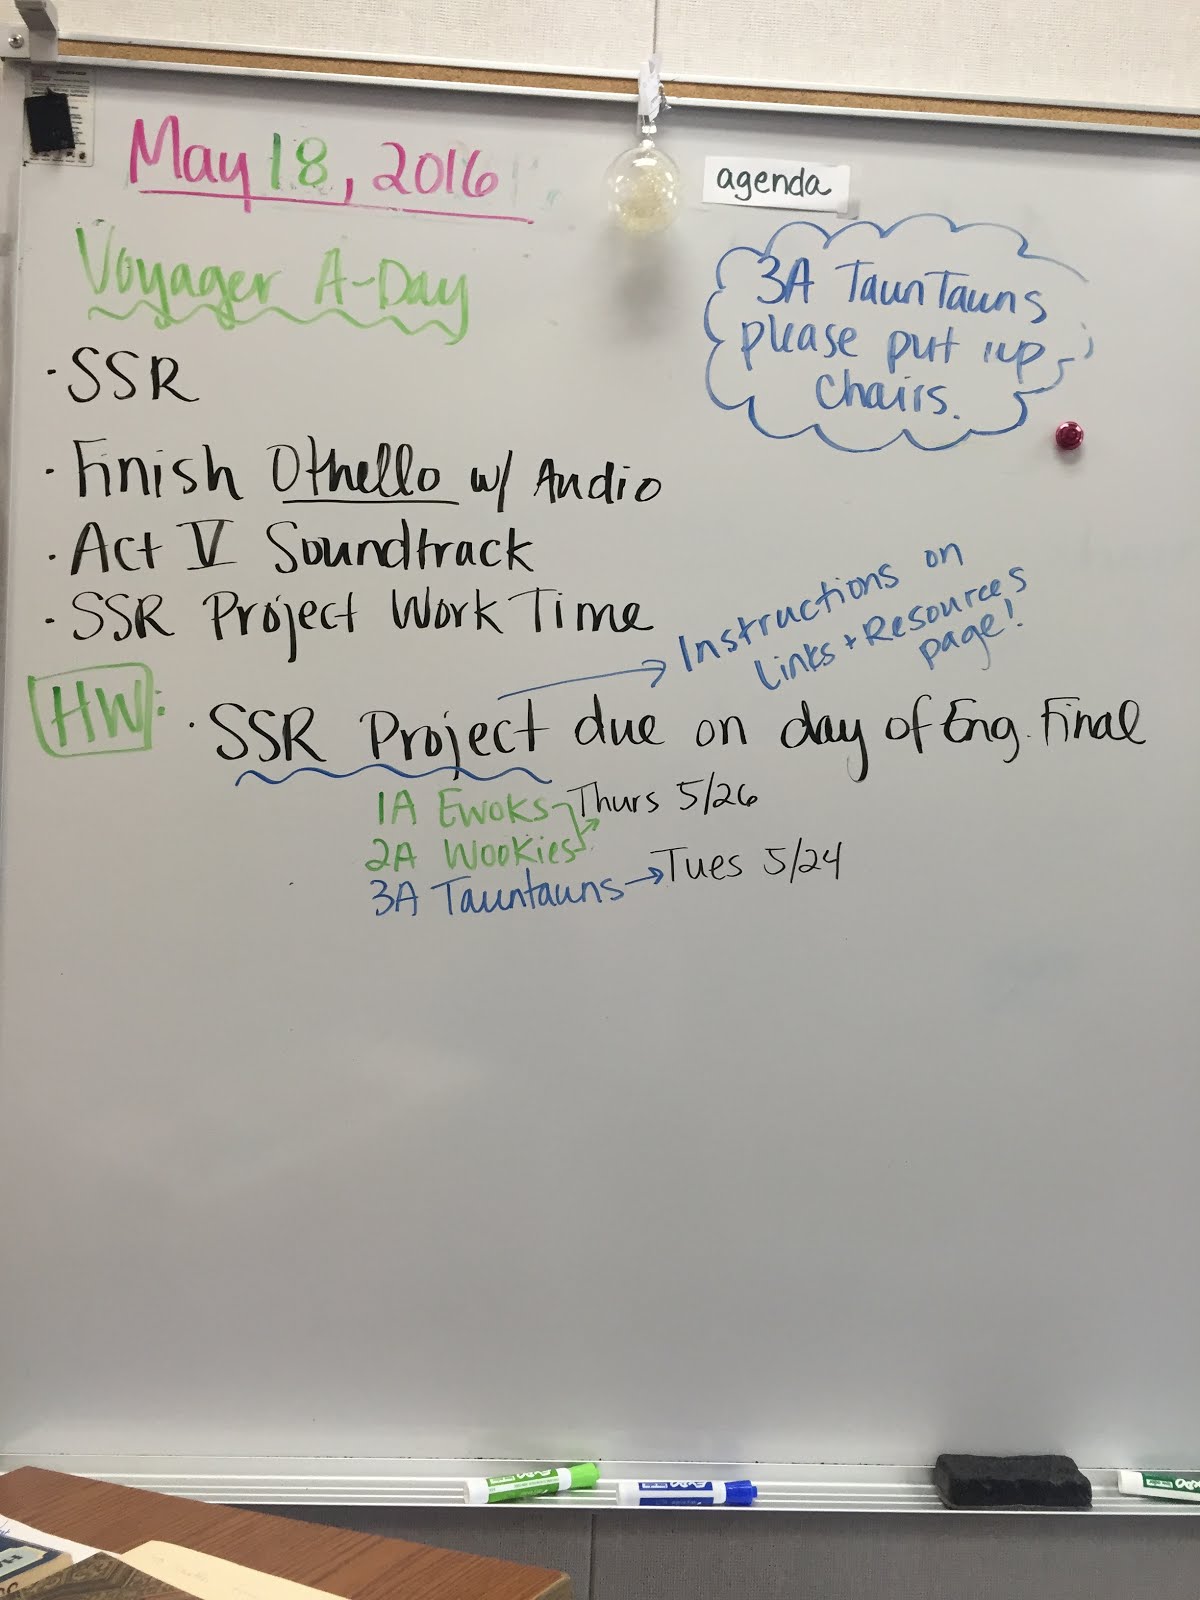 May 18, 2016
agenda
Voyager A-Day
3A TaunTauns
please put up
chairs.
· SSR
· Finish Othello w/ Audio
· Act V Soundtrack
· SSR Project Work Time
Instructions on
Links + Resources
page!
HW: · SSR Project due on day of Eng. Final
1A Ewoks Thurs 5/26
2A Wookies
3A Tauntauns → Tues 5/24
EXPO
EXPO